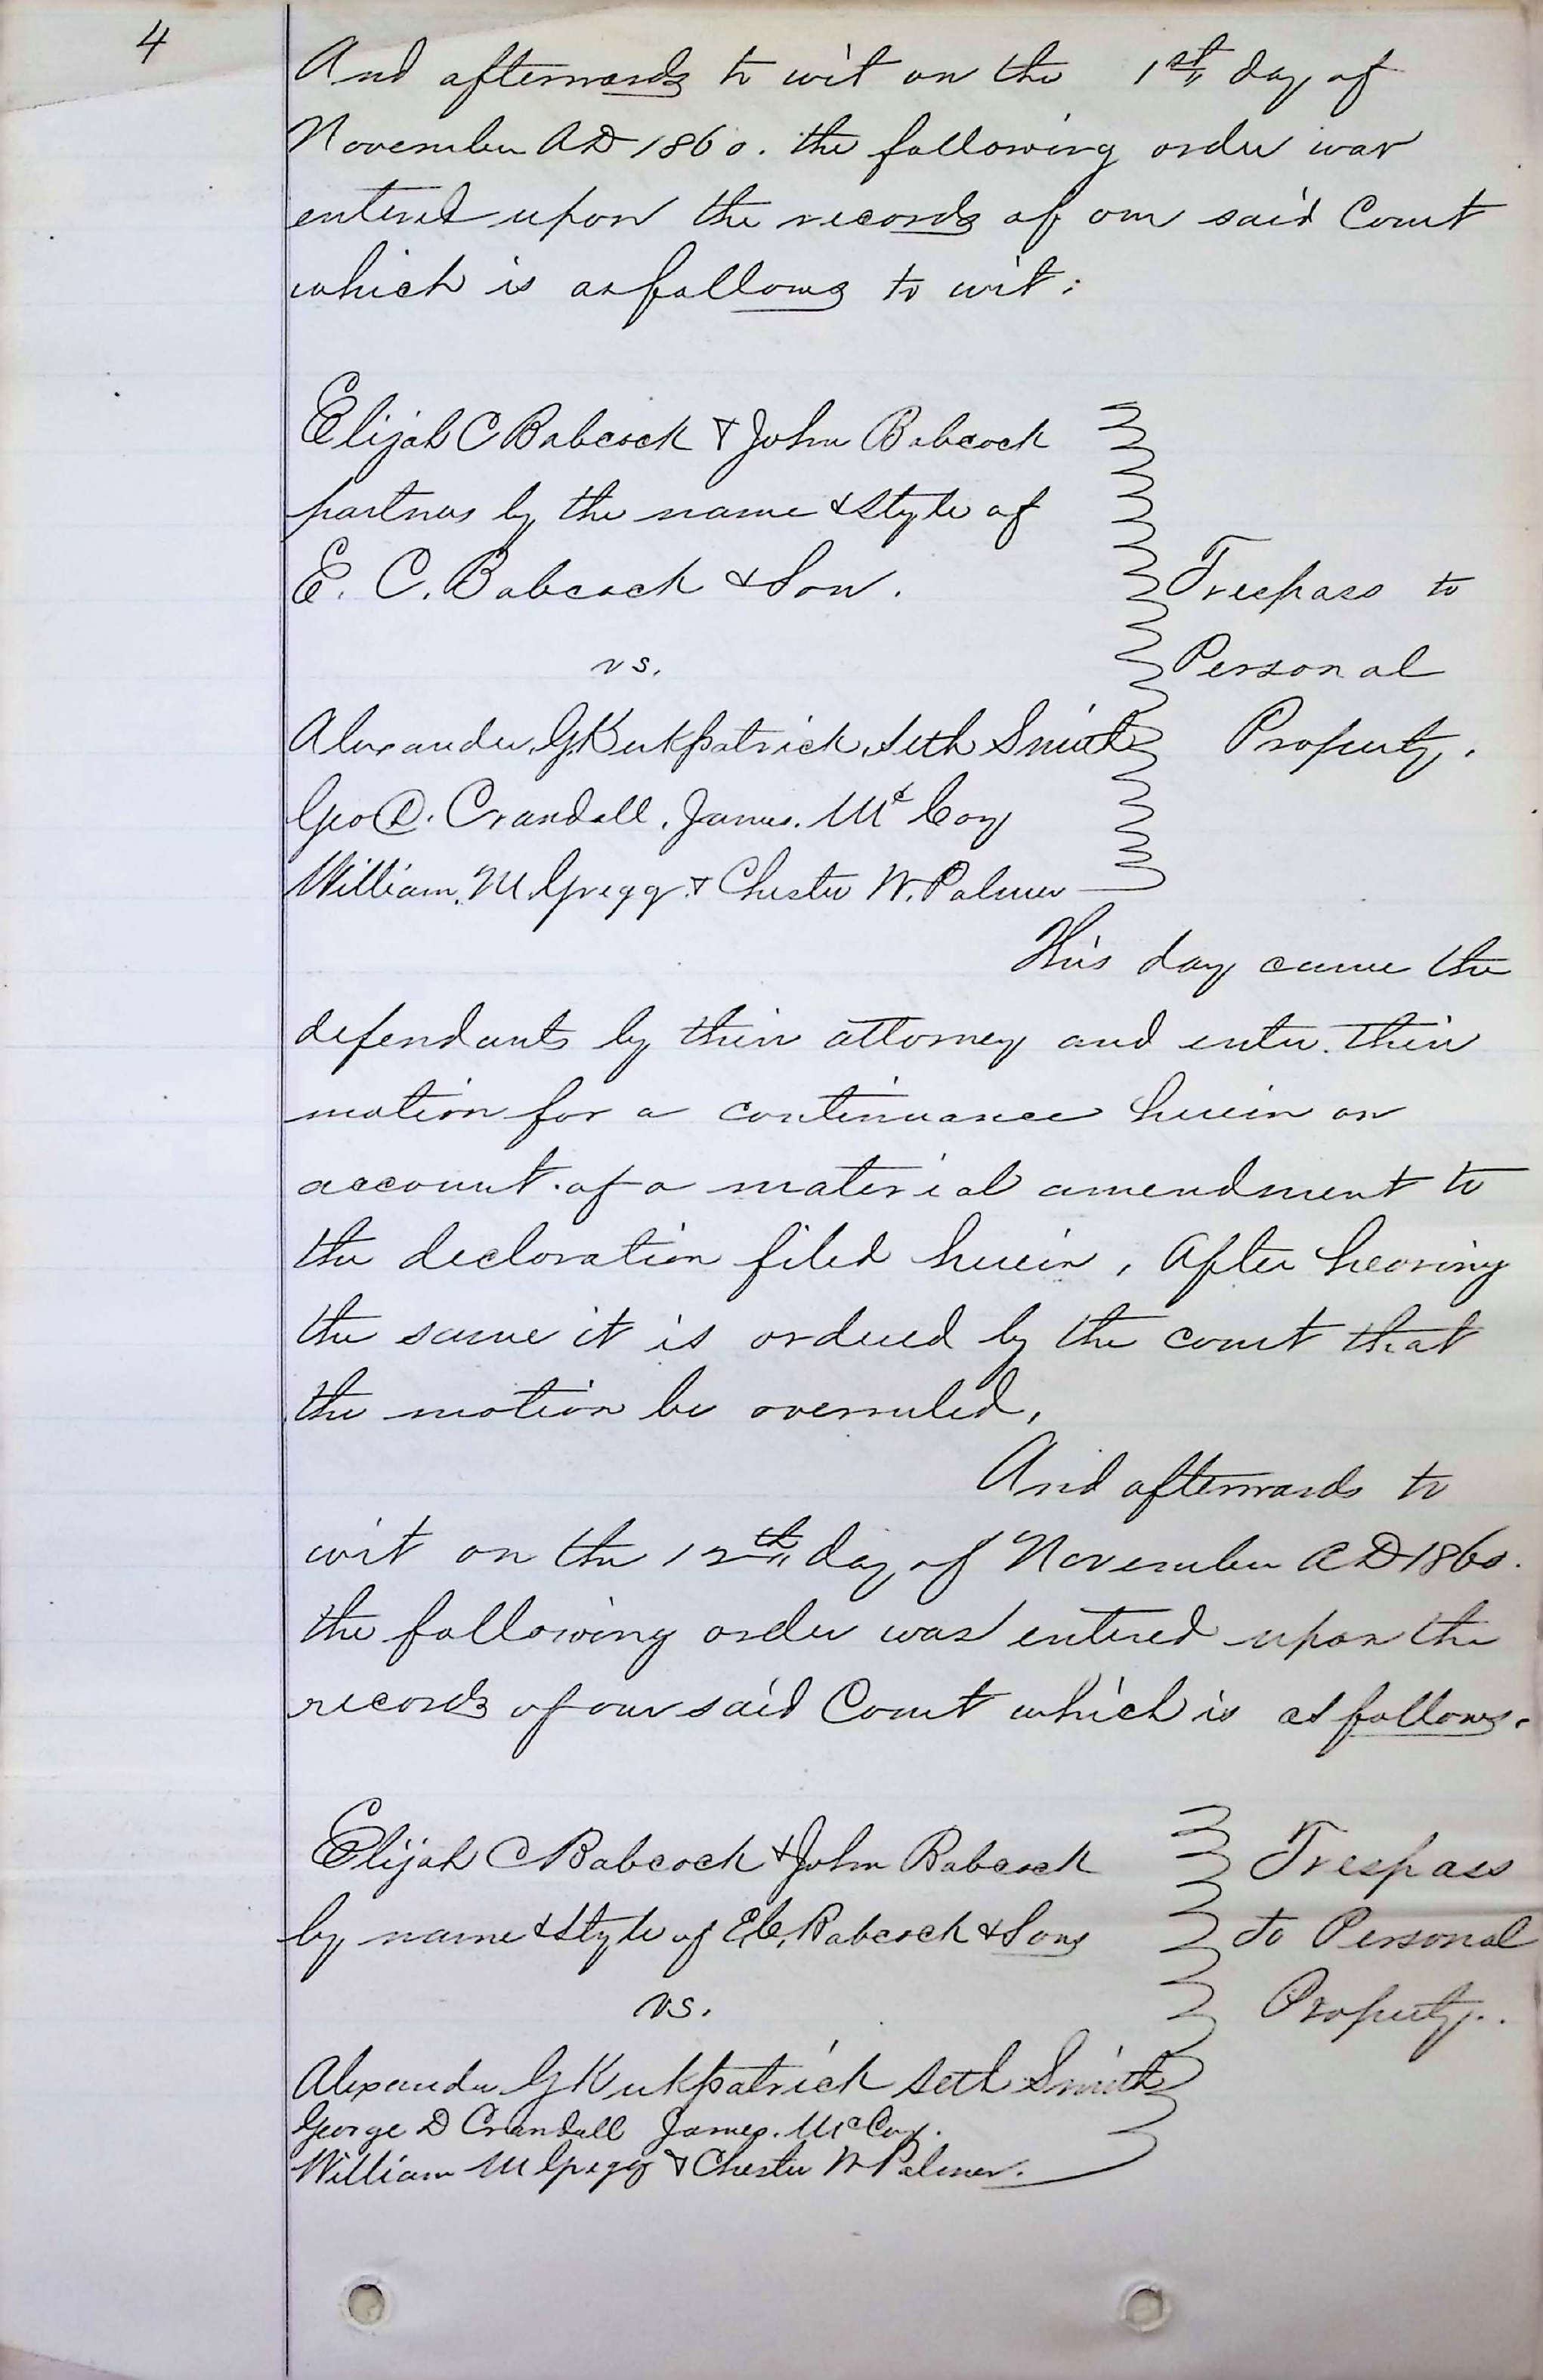 4
And afterwards to wit on the 1st day of
November AD 1860. the following order was
entered upon the records of our said Court
which is as follows to wit:
Elijah C Babcock & John Babcock
partners by the name & style of
E. C. Babcock & Son.
Trespass to
vs.
Personal
Alexander G Kirkpatrick, Seth Smith
Property.
Geo D. Crandall, James. Mc Coy
William. M. Gregg & Chester W. Palmer
This day came the
defendants by their attorney and enter their
motion for a continuance herein on
account of a material amendment to
the declaration filed herein, After hearing
the same it is ordered by the court that
the motion be overruled,
And afterwards to
wit on the 12th day of November AD 1860.
the following order was entered upon the
records of our said Court which is as follows.
Elijah C Babcock & John Babcock
Trespass
by name & style of E C. Babcock & Sons
to Personal
vs.
Property.
Alexander G Kirkpatrick Seth Smith
George D Crandall James. McCoy.
William M Gregg & Chester W Palmer.